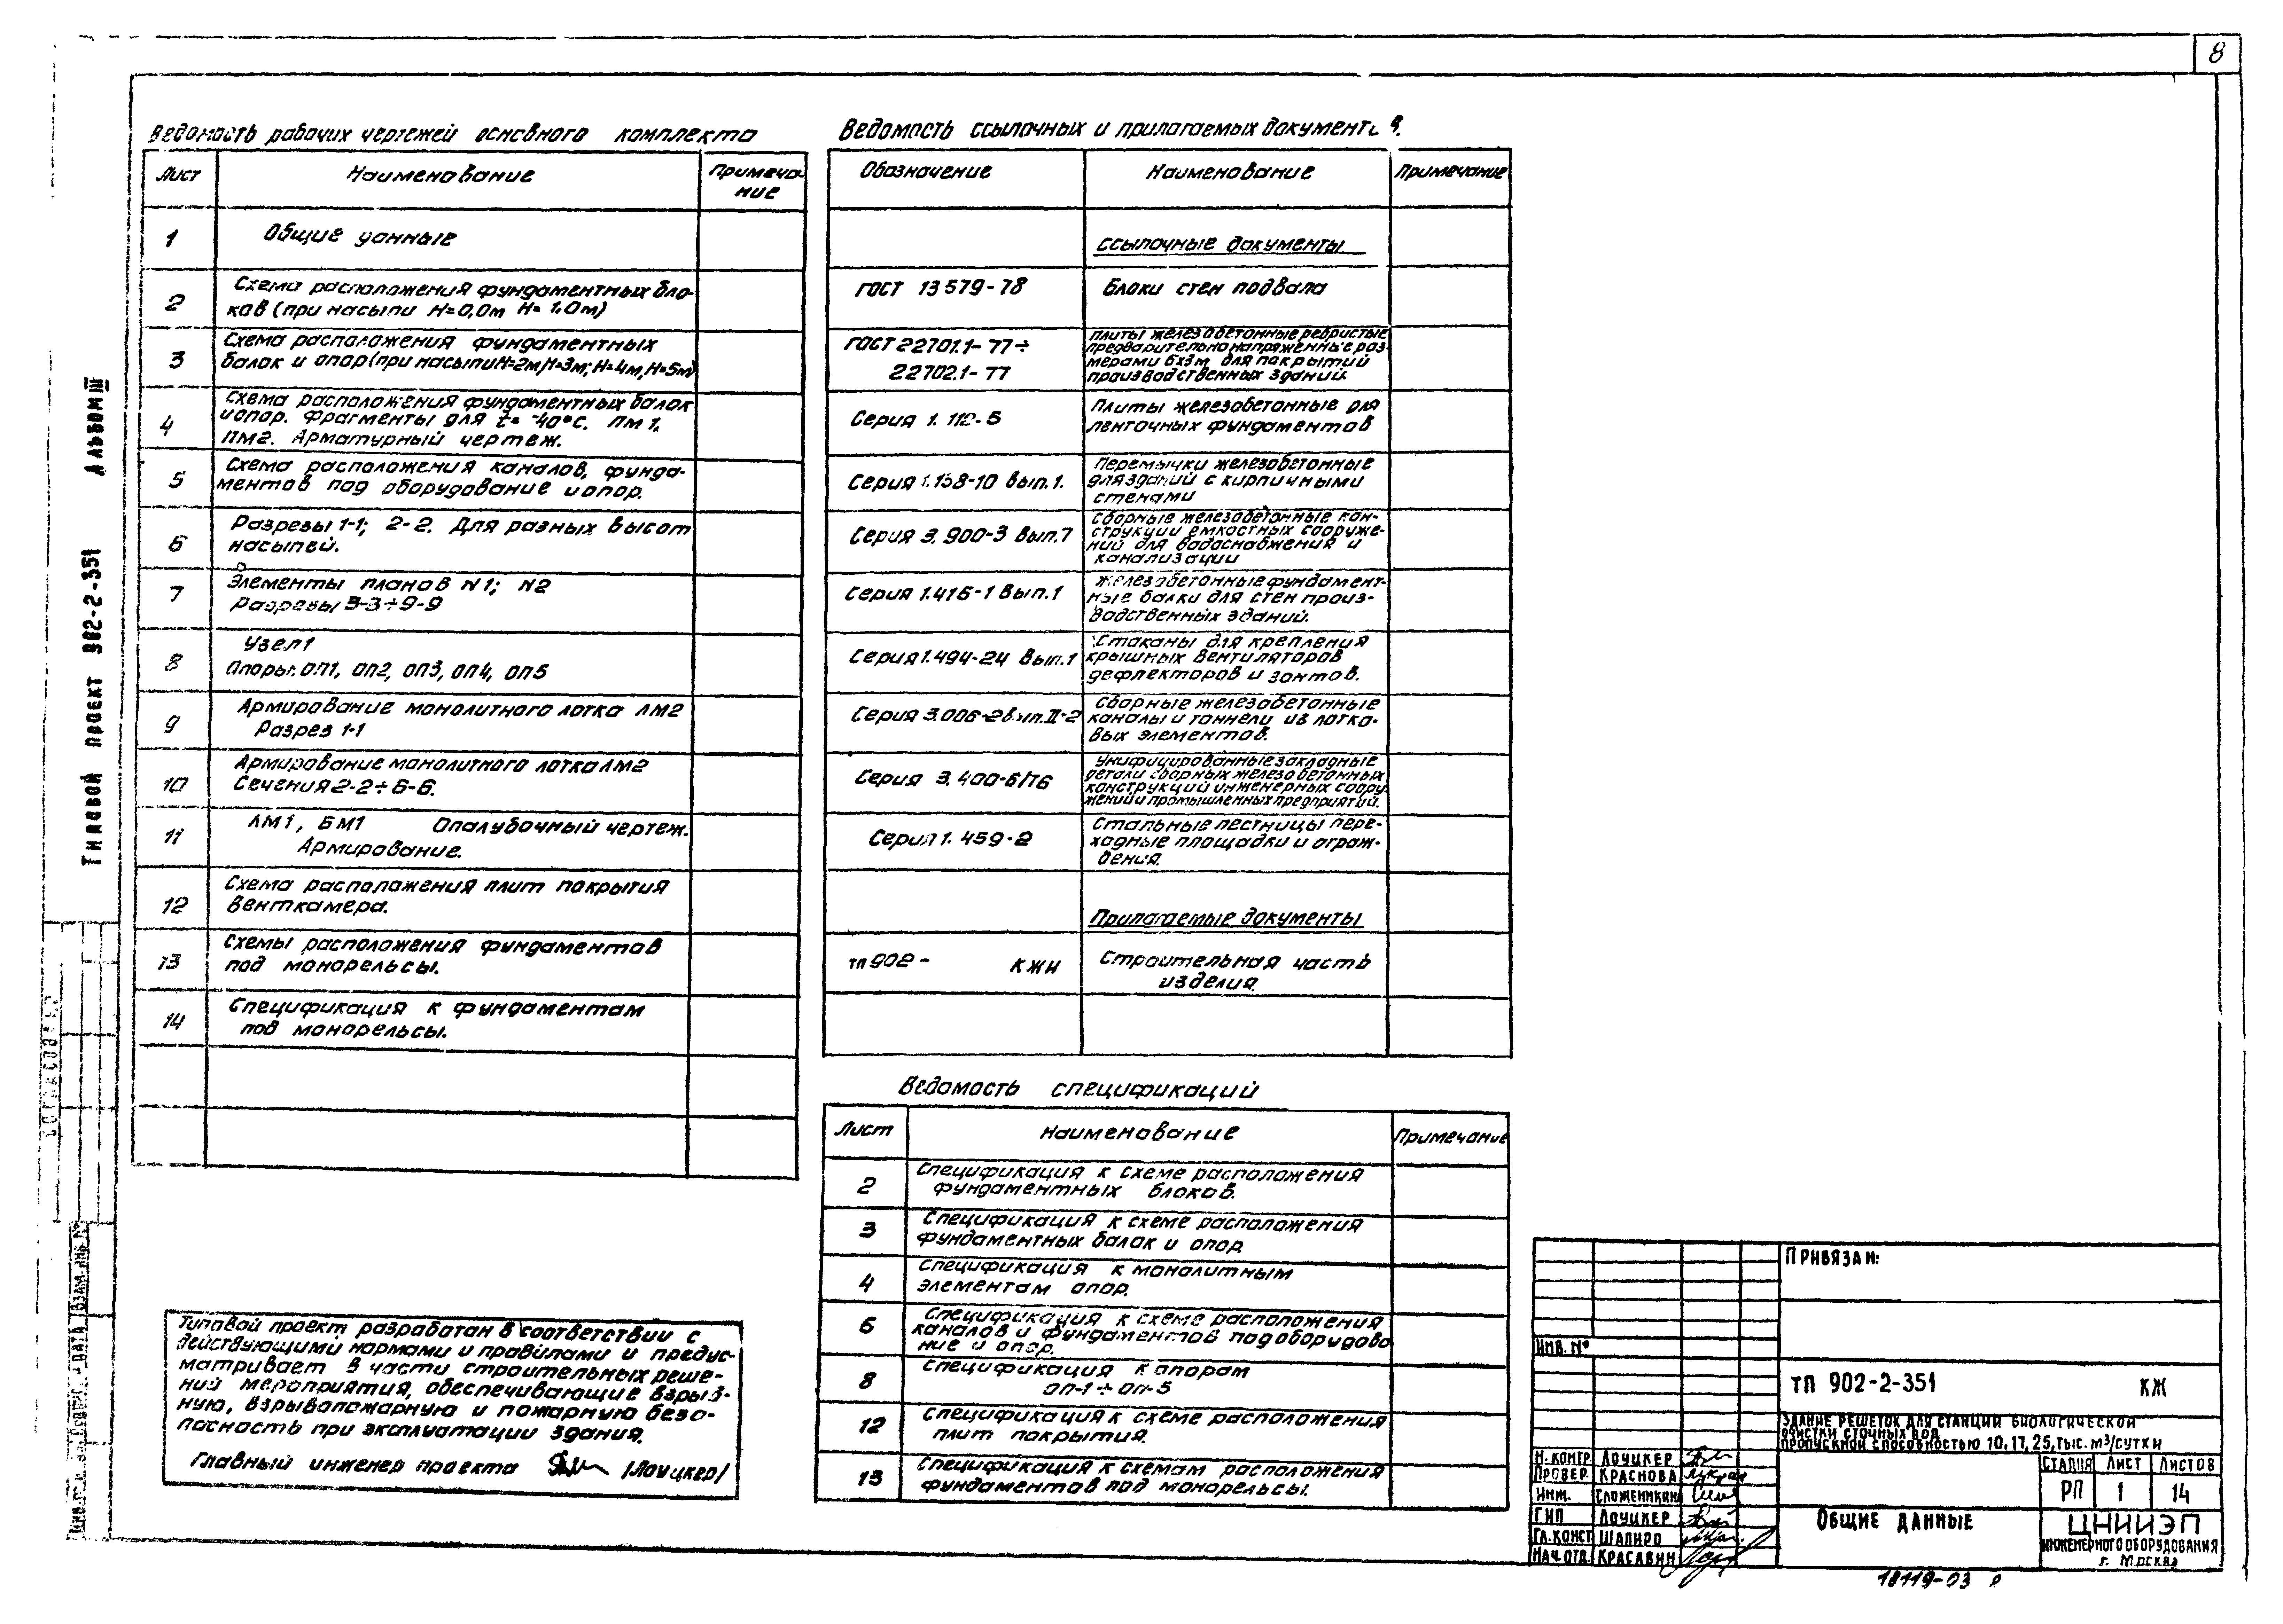 8
Альбом III
Типовой проект 902-2-351
Ведомость рабочих чертежей основного комплекта
Лист
Наименование
Примеча-
ние
1
Общие данные
2
Схема расположения фундаментных бло-
ков (при насыпи Н=0,0м Н= 1,0м)
3
Схема расположения фундаментных
балок и опор (при насыпи Н=2м, Н=3м; Н=4м, Н=5м)
4
Схема расположения фундаментных балок
и опор. Фрагменты для t= -40°С. Пм 1.
ПМ2. Арматурный чертеж.
5
Схема расположения каналов, фунда-
ментов под оборудование и опор.
6
Разрезы 1-1; 2-2. Для разных высот
насыпей.
7
Элементы планов N1; N2
Разрезы 3-3÷9-9
8
Узел 1
Опоры: ОП1, ОП2, ОП3, ОП4, ОП5
9
Армирование монолитного лотка ЛМ2
Разрез 1-1
10
Армирование монолитного лотка ЛМ2
Сечения 2-2÷6-6.
11
ЛМ1, БМ1 Опалубочный чертеж.
Армирование.
12
Схема расположения плит покрытия
венткамера.
13
Схемы расположения фундаментов
под монорельсы.
14
Спецификация к фундаментам
под монорельсы.
Ведомость ссылочных и прилагаемых документов.
Обозначение
Наименование
Примечание
Ссылочные документы
ГОСТ 13579-78
Блоки стен подвала
ГОСТ 22701.1-77÷
22702.1-77
Плиты железобетонные ребристые
предварительно напряженные раз-
мерами 6х3м для покрытий
производственных зданий.
Серия 1.112-5
Плиты железобетонные для
ленточных фундаментов
Серия 1.138-10 вып.1.
Перемычки железобетонные
для зданий с кирпичными
стенами
Серия 3.900-3 вып.7
Сборные железобетонные кон-
струкции емкостных сооруже-
ний для водоснабжения и
канализации
Серия 1.415-1 вып.1
Железобетонные фундамент-
ные балки для стен произ-
водственных зданий.
Серия 1.494-24 вып.1
Стаканы для крепления
крышных вентиляторов
дефлекторов и зонтов.
Серия 3.006-2 вып.II-2
Сборные железобетонные
каналы и тоннели из лотко-
вых элементов.
Серия 3.400-6/76
Унифицированные закладные
детали сборных железобетонных
конструкций инженерных соору-
жений и промышленных предприятий.
Серия 1.459-2
Стальные лестницы пере-
ходные площадки и ограж-
дения.
Прилагаемые документы
тп 902- КЖИ
Строительная часть
изделия
Ведомость спецификаций
Лист
Наименование
Примечание
2
Спецификация к схеме расположения
фундаментных блоков.
3
Спецификация к схеме расположения
фундаментных балок и опор
4
Спецификация к монолитным
элементам опор.
6
Спецификация к схеме расположения
каналов и фундаментов под оборудова
ние и опор.
8
Спецификация к опорам
оп-1÷оп-5
12
Спецификация к схеме расположения
плит покрытия.
13
Спецификация к схемам расположения
фундаментов под монорельсы.
Типовой проект разработан в соответствии с
действующими нормами и правилами и предус-
матривает в части строительных реше-
ний мероприятия, обеспечивающие взрыв-
ную, взрывопожарную и пожарную безо-
пасность при эксплуатации здания.
Главный инженер проекта /Лоуцкер/
Привязан:
Инв. №
ТП 902-2-351 КЖ
Здание решеток для станции биологической
очистки сточных вод
пропускной способностью 10, 17, 25, тыс. м³/сутки
Н. контр. Лоуцкер
Провер. Краснова
Инж. Сложеникин
ГИП Лоуцкер
Гл. конст Шапиро
Нач. отд. Красавин
Стадия Лист Листов
РП 1 14
Общие данные
ЦНИИЭП
инженерного оборудования
г. Москва
Согласовано
Взам. инв №
18119-03 8